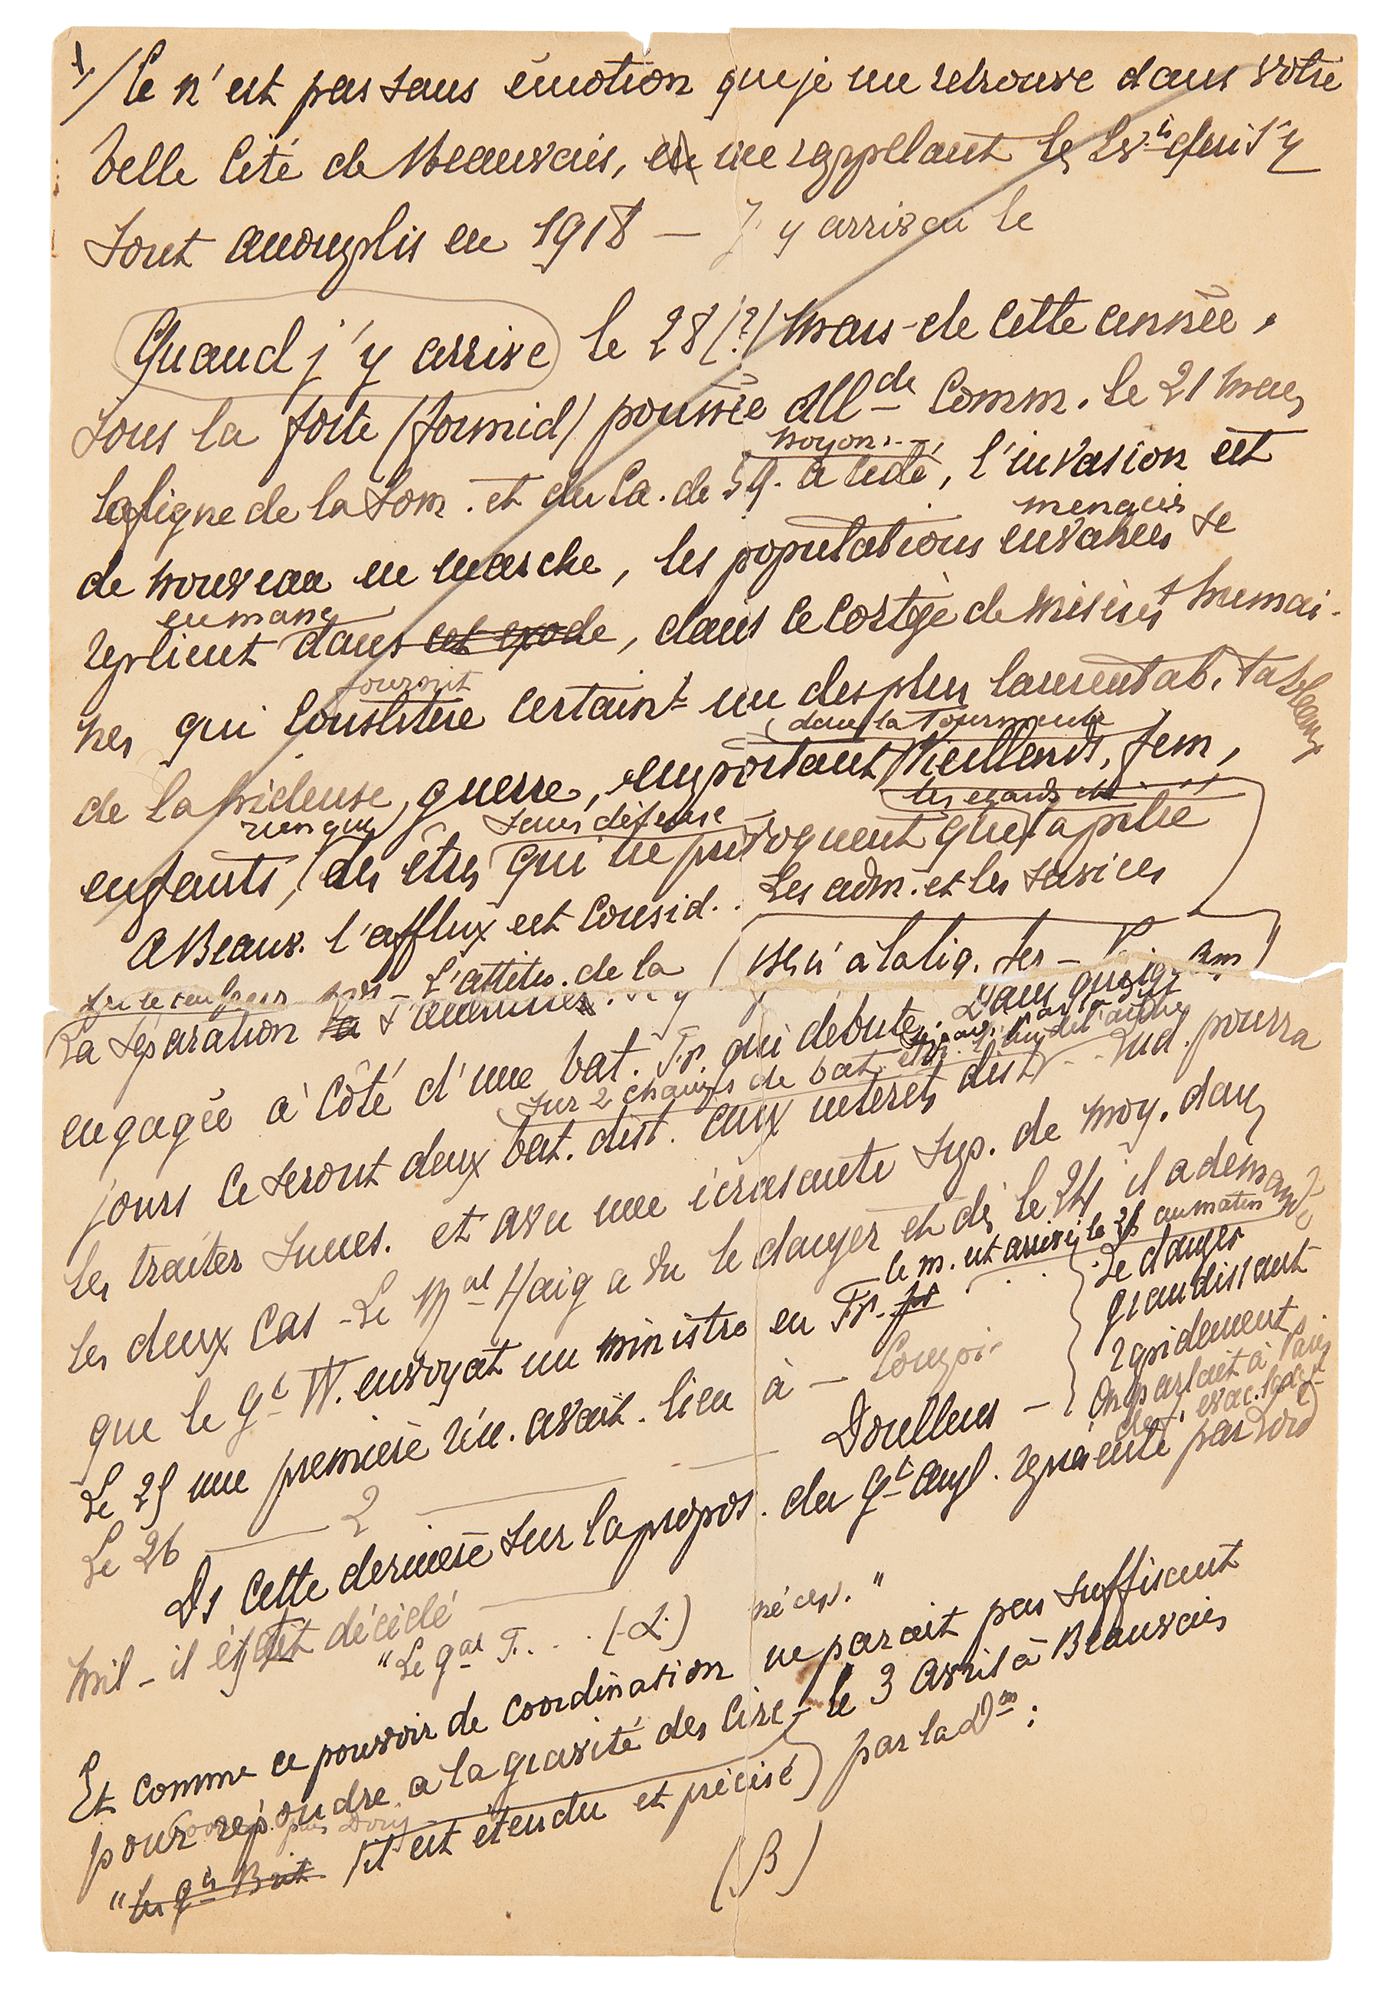 1/ Ce n'est pas sans émotion que je me retrouve dans votre
belle Cité de Beauvais, en me rappelant les Evts qui s'y
sont accomplis en 1918 — J'y arrivai le
Quand j'y arrive le 28 (?) mars de cette année,
sous la forte (formid) poussée Allde Comm. le 21 mars,
la ligne de la Som. et du Ca. de St Q. a cédé, l'invasion est
noyon
de nouveau en marche, les populations envahies se
menacées
replient dans cet exode, dans ce cortège de misères humai-
en mane
nes qui constitue certaint un des plus lamentab. tableaux
fournit
de la hideuse guerre, emportant vieillards, fem,
dans la tourmente
enfants, des êtres qui ne provoquent que la pitié
rien que sans défense les egards et
A Beauv. l'afflux est consid. Les adm. et les services
L'attitu. de la
La séparation
engagée à côté d'une bat. Fr. qui débute. Dans quelq
jours ce seront deux bat. dist. aux intérêts dist Lud. pourra
sur 2 champs de bat.
les traiter succes. et avec une écrasante sup. de moy. dans
les deux cas - Le Mal Haig a vu le danger et dès le 24 il a demandé
que le Gt W. envoyat un ministre en Fr.
le m. est arrivé le 26 au matin
Le danger
grandissant
rapidement
On parlait à Paris
Le 25 une première réu. avait lieu à — Compi-
Le 26 — 2 — Doullens —
Ds cette dernière sur la propos. du Gt angl. représenté par Lord
Mil - il était décidé
"Le gal F. . . (L) néces."
Et comme ce pouvoir de coordination ne parait pas suffisant
pour répondre a la gravité des circ - le 3 avril à Beauvais
"les gts Brit il est étendu et précisé) par la Don :
(B)